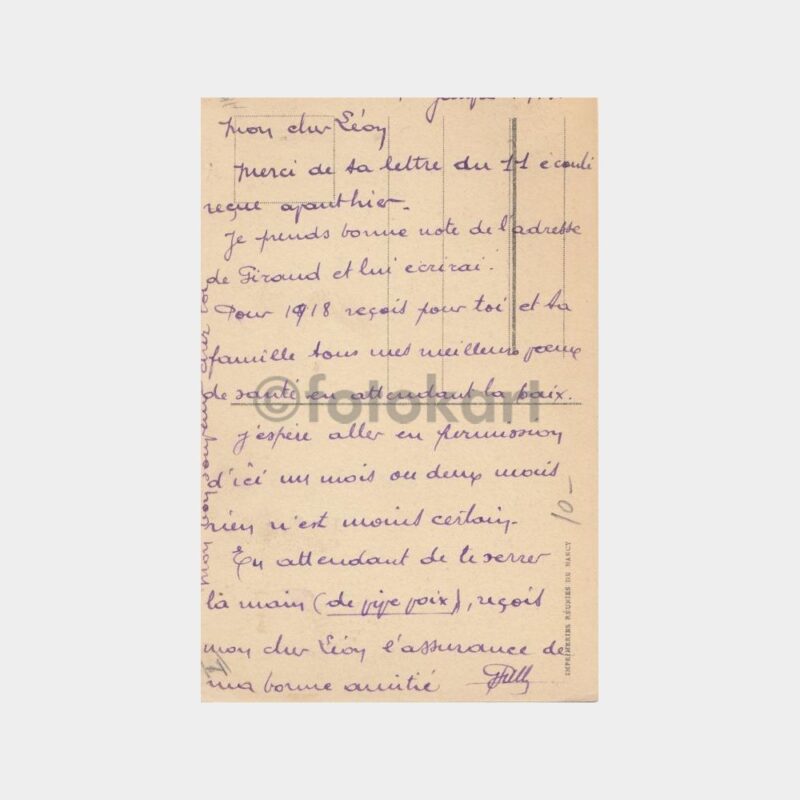 Mon cher Léon
Merci de ta lettre du 11 écoulé
reçue avant hier.
Je prends bonne note de l'adresse
de Giraud et lui écrirai.
Pour 1918 reçois pour toi et ta
famille tous mes meilleurs vœux
de santé en attendant la paix.
J'espère aller en permission
d'ici un mois ou deux mais
rien n'est moins certain.
En attendant de te serrer
la main (de vive voix), reçois
mon cher Léon l'assurance de
ma bonne amitié
10-
IMPRIMERIES RÉUNIES DE NANCY
©fotokart